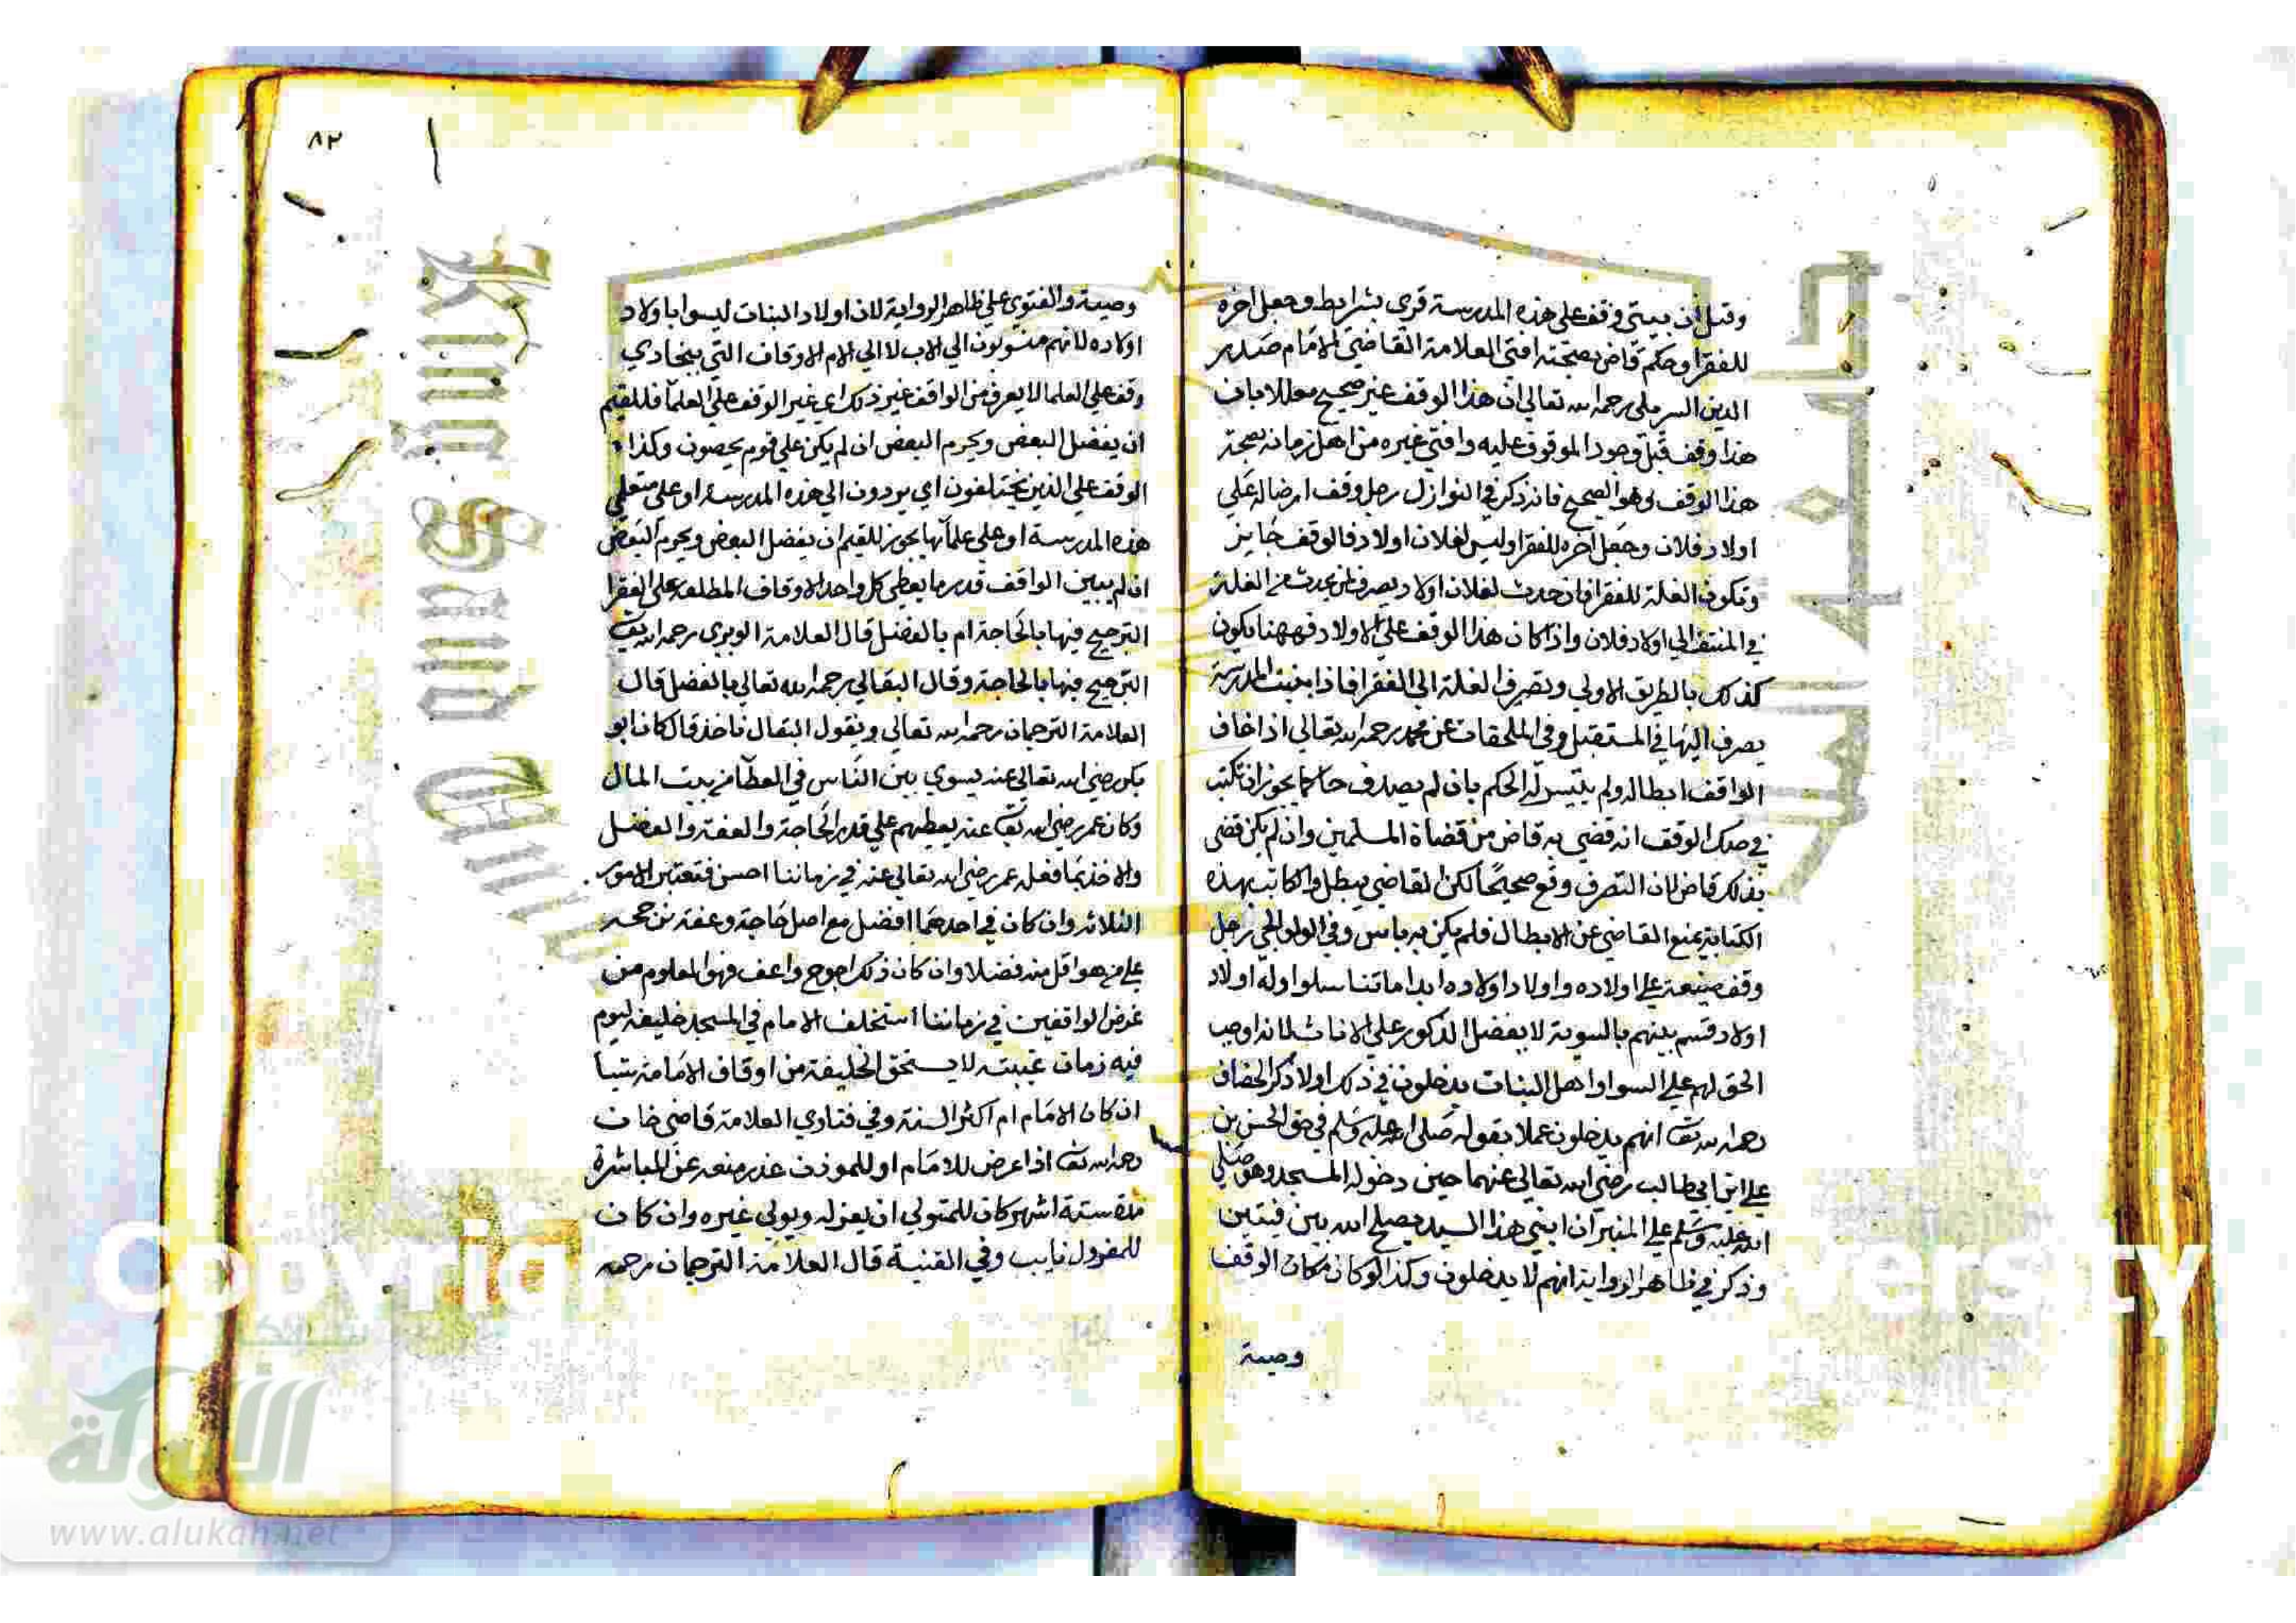 وقبل ان يبنى وقف على هذه المدرسة قري بشرايط وجعل اخره
للفقرا وحكم قاض بصحته افتي العلامة القاضي الامام صدر
الدين رحمه الله تعالي ان هذا الوقف غير صحيح معللا بان
هذا وقف قبل وجود الموقوف عليه وافتي غيره من اهل زمانه بصحة
هذا الوقف وهو الصحيح فانه ذكر في النوازل رجل وقف ارضا له علي
اولاد فلان وجعل اخره للفقرا وليس لفلان اولاد فالوقف جايز
وتكون الغلة للفقرا فان حدث لفلان اولاد يصرف لمن يحدث من الغلة
في اولاد فلان واذا كان هذا الوقف علي الاولاد فههنا يكون
كذلك بالطريق الاولي وتصرف الغلة الي الفقرا فاذا بنيت المدرسة
يصرف اليها في المستقبل وفي الملحقات عن محمد رحمه الله تعالي اذا خاف
الواقف ابطاله ولم يتيسر له الحكم بان لم يصادف حاكما يجوز ان يكتب
في صك الوقف انه قضي به قاض من قضاة المسلمين وان لم يكن قضي
بذلك قاض لان التصرف وقع صحيحا لكن القاضي يبطل والكاتب بهذه
الكتابة يمنع القاضي عن الابطال فلم يكن به باس وفي الولوالجي رجل
وقف ضيعة علي اولاده واولاد اولاده ابدا ماتناسلوا وله اولاد
اولاد قسم بينهم بالسوية لا يفضل الذكور علي الاناث لانه اوجب
الحق لهم علي السوا واهل البنات يدخلون في ذلك اولا ذكر الخصاف
رحمه الله تعا انهم يدخلون عملا بقوله صلي الله عليه وسلم في حق الحسن بن
علي ابن ابي طالب رضي الله تعالي عنهما حين دخوله المسجد وهو صلي
الله عليه وسلم علي المنبر ان ابني هذا السيد يصلح الله بين فيتين
وذكر في ظاهر الرواية انهم لا يدخلون وكذا لو كان مكان الوقف
وصية
٨٢
وصية والفتوي علي ظاهر الرواية لان اولاد البنات ليسوا باولاد
اولاده لانهم منسوبون الي الاب لا الي الام الاوقاف التي
وقف علي العلما لا يعرف من الواقف غير ذلك اي غير الوقف علي العلما فللقيم
ان يفضل البعض ويحرم البعض ان لم يكن علي قوم يحصون وكذا
الوقف علي الذين يختلفون اي يودون الي هذه المدرسة او علي متعلمي
هذه المدرسة او علي علمآيها يجوز للقيم ان يفضل البعض ويحرم البعض
ان لم يبين الواقف قدر ما يعطي كل واحد الاوقاف المطلقة علي الفقرا
الترجيح فيها بالحاجة ام بالفضل قال العلامة الوبري رحمه الله تعا
الترجيح فيها بالحاجة وقال البقالي رحمه الله تعالي بالفضل قال
العلامة الترجمان رحمه الله تعالي وبقول البقال ناخذ قال كان ابو
بكر رضي الله تعالي عنه يسوي بين الناس في العطآ من بيت المال
وكان عمر رضي الله تعا عنه يعطيهم علي قدر الحاجة والعفة والفضل
والاخذ بما فعله عمر رضي الله تعالي عنه في زماننا احسن فتعتبر الامور
الثلاثة وان كان في احدهما افضل مع اصل حاجة وعفة
علي من هو اقل منه فضلا وان كان ذلك احوج واعف فهو المعلوم من
غرض الواقفين في زماننا استخلف الامام في المسجد خليفة ليوم
فيه زمان غيبته لا يستحق الخليفة من اوقاف الامامة شيا
ان كان الامام ام اكثر السنة وفي فتاوي العلامة قاضي خان
رحمه الله تعا اذا عرض للامام او للموذن عذر منعه عن المباشرة
مدة ستة اشهر كان للمتولي ان يعزله ويولي غيره وان كان
للمعزول نايب وفي القنية قال العلامة الترجمان رحمه
King Saud
Copyrig
ersity
الألوكة
www.alukah.net